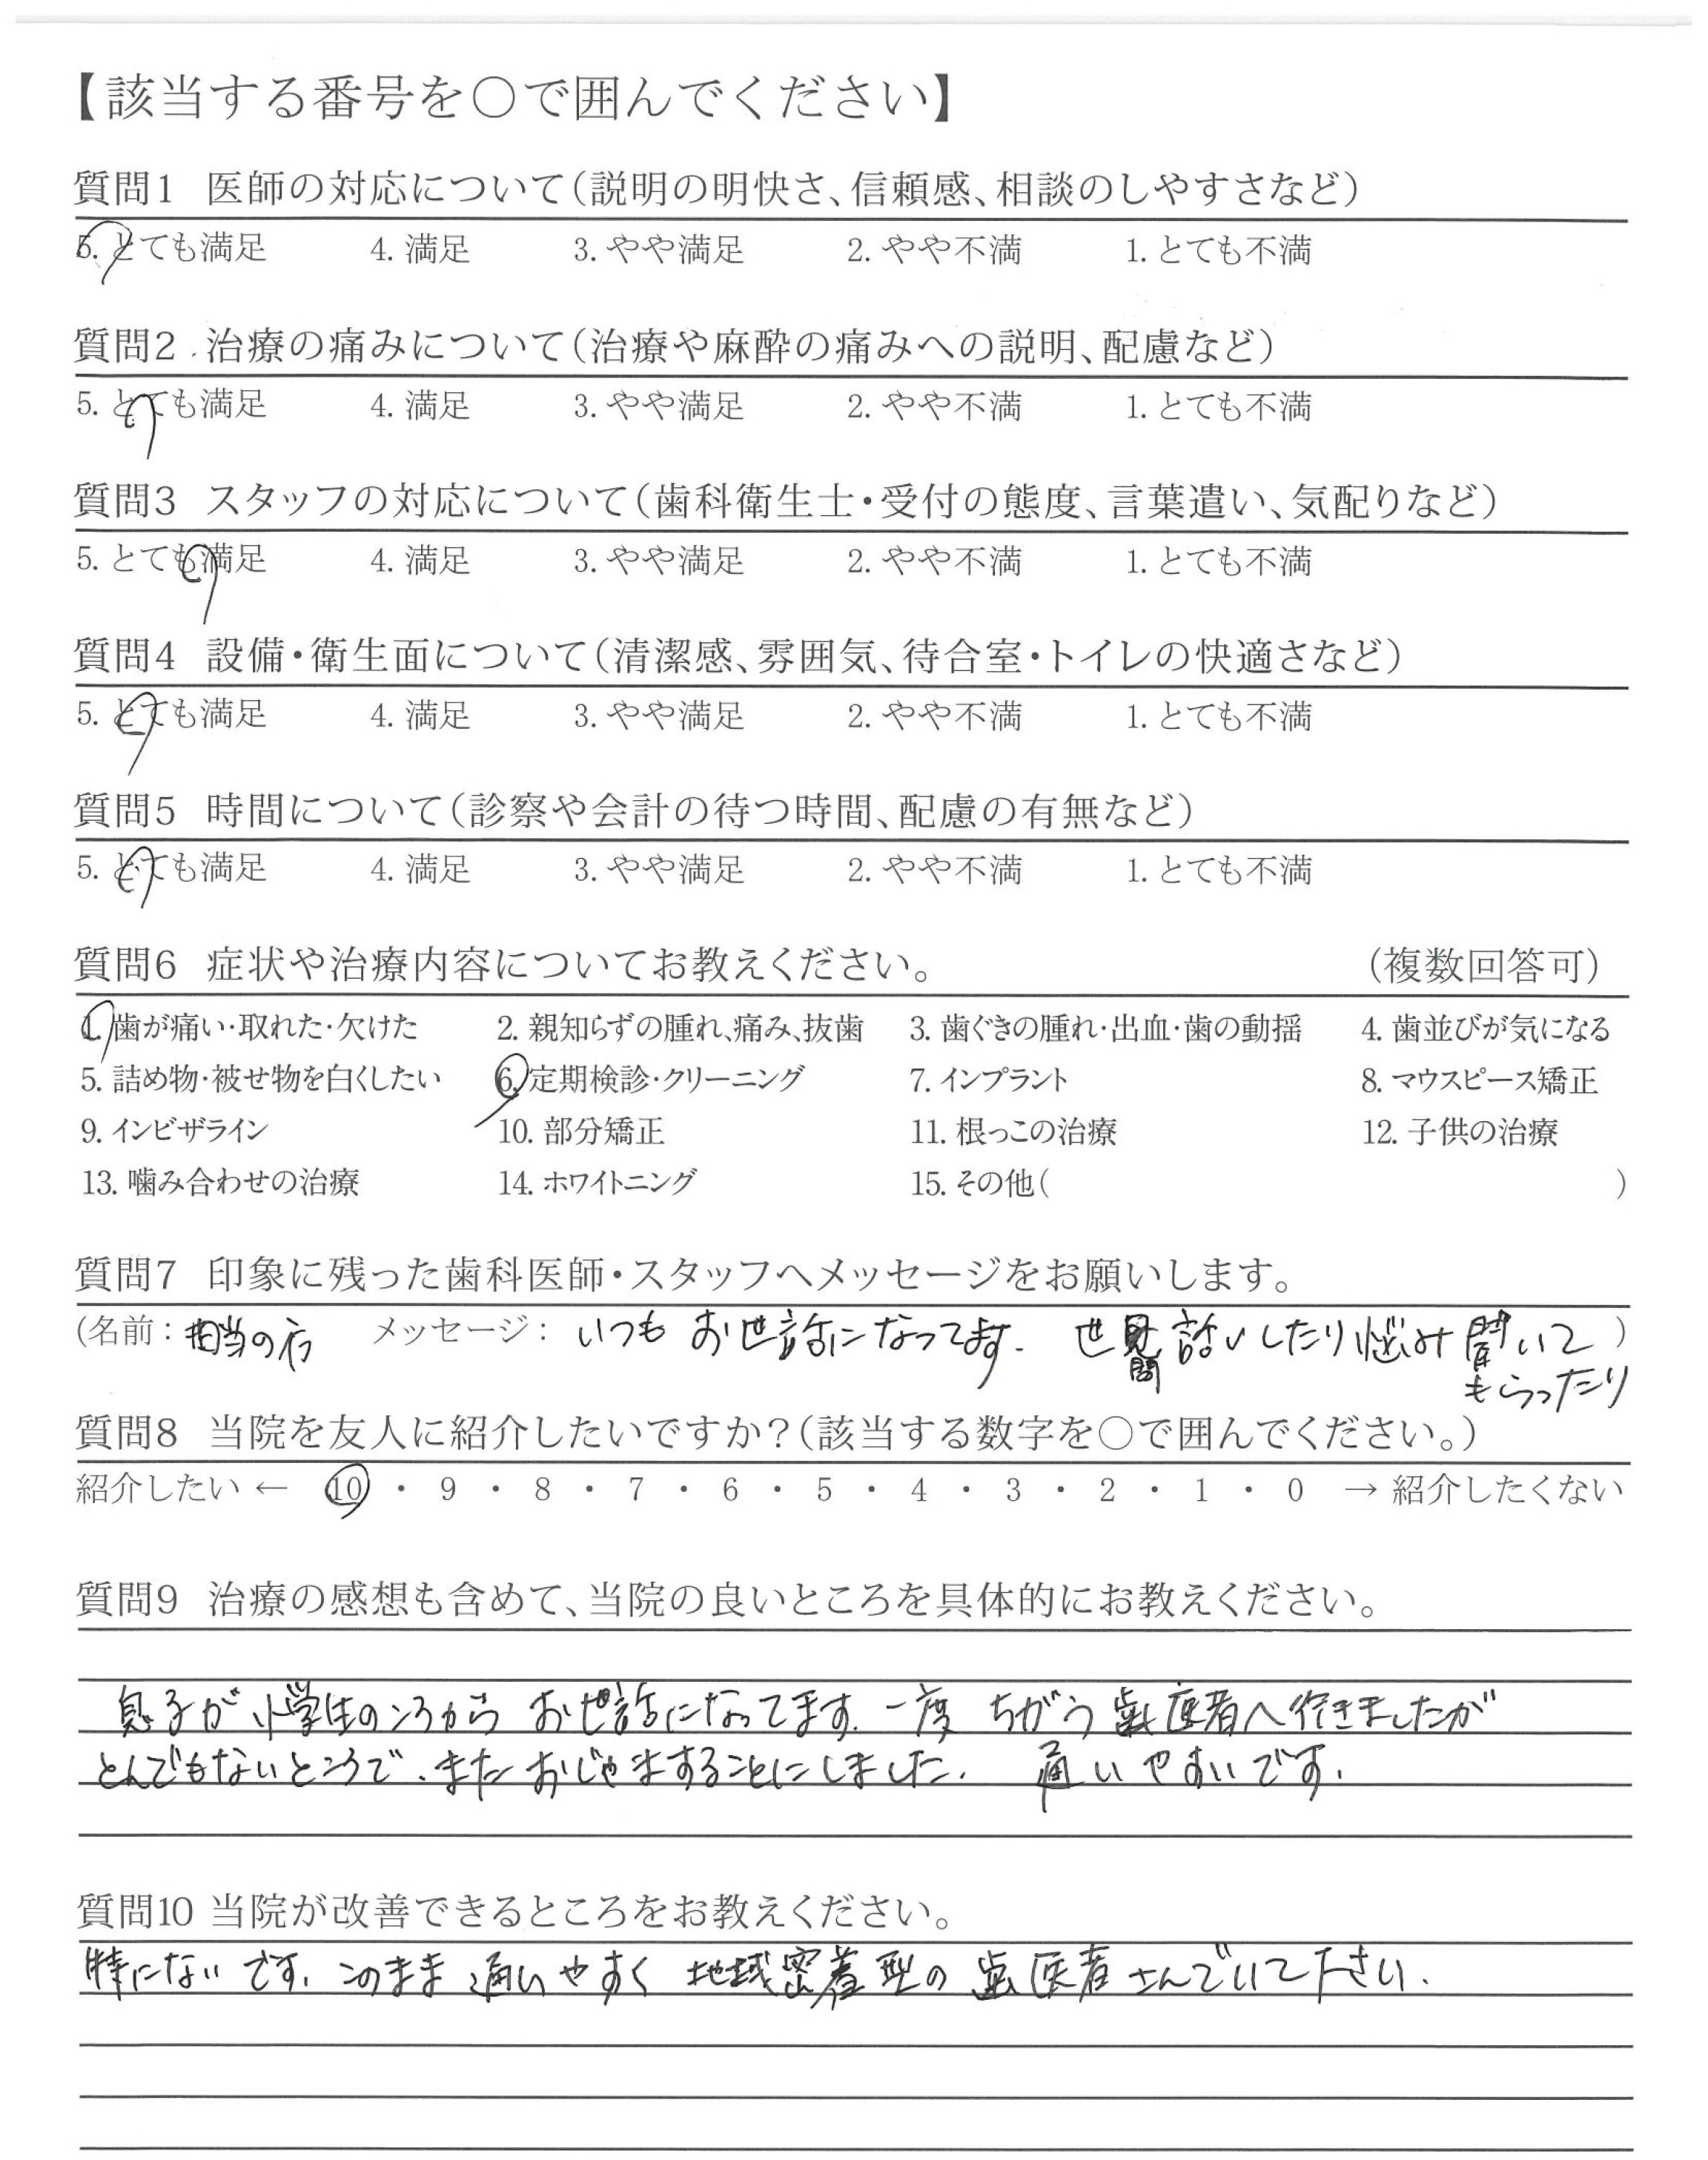 【該当する番号を○で囲んでください】
質問1 医師の対応について(説明の明快さ、信頼感、相談のしやすさなど)
5. とても満足 4. 満足 3. やや満足 2. やや不満 1. とても不満
質問2 治療の痛みについて(治療や麻酔の痛みへの説明、配慮など)
5. とても満足 4. 満足 3. やや満足 2. やや不満 1. とても不満
質問3 スタッフの対応について(歯科衛生士・受付の態度、言葉遣い、気配りなど)
5. とても満足 4. 満足 3. やや満足 2. やや不満 1. とても不満
質問4 設備・衛生面について(清潔感、雰囲気、待合室・トイレの快適さなど)
5. とても満足 4. 満足 3. やや満足 2. やや不満 1. とても不満
質問5 時間について(診察や会計の待つ時間、配慮の有無など)
5. とても満足 4. 満足 3. やや満足 2. やや不満 1. とても不満
質問6 症状や治療内容についてお教えください。 (複数回答可)
1. 歯が痛い・取れた・欠けた 2. 親知らずの腫れ、痛み、抜歯 3. 歯ぐきの腫れ・出血・歯の動揺 4. 歯並びが気になる
5. 詰め物・被せ物を白くしたい 6. 定期検診・クリーニング 7. インプラント 8. マウスピース矯正
9. インビザライン 10. 部分矯正 11. 根っこの治療 12. 子供の治療
13. 噛み合わせの治療 14. ホワイトニング 15. その他( )
質問7 印象に残った歯科医師・スタッフへメッセージをお願いします。
(名前: 担当の方 メッセージ: いつもお世話になってます. 世間話いしたり悩み聞いて)
もらったり
質問8 当院を友人に紹介したいですか?(該当する数字を○で囲んでください。)
紹介したい ← 10 ・ 9 ・ 8 ・ 7 ・ 6 ・ 5 ・ 4 ・ 3 ・ 2 ・ 1 ・ 0 → 紹介したくない
質問9 治療の感想も含めて、当院の良いところを具体的にお教えください。
息子が小学生のころからお世話になってます. 一度ちがう歯医者へ行きましたが
とんでもないところで、またおじゃますることにしました. 通いやすいです.
質問10 当院が改善できるところをお教えください。
特にないです. このまま通いやすく地域密着型の歯医者さんでいて下さい.